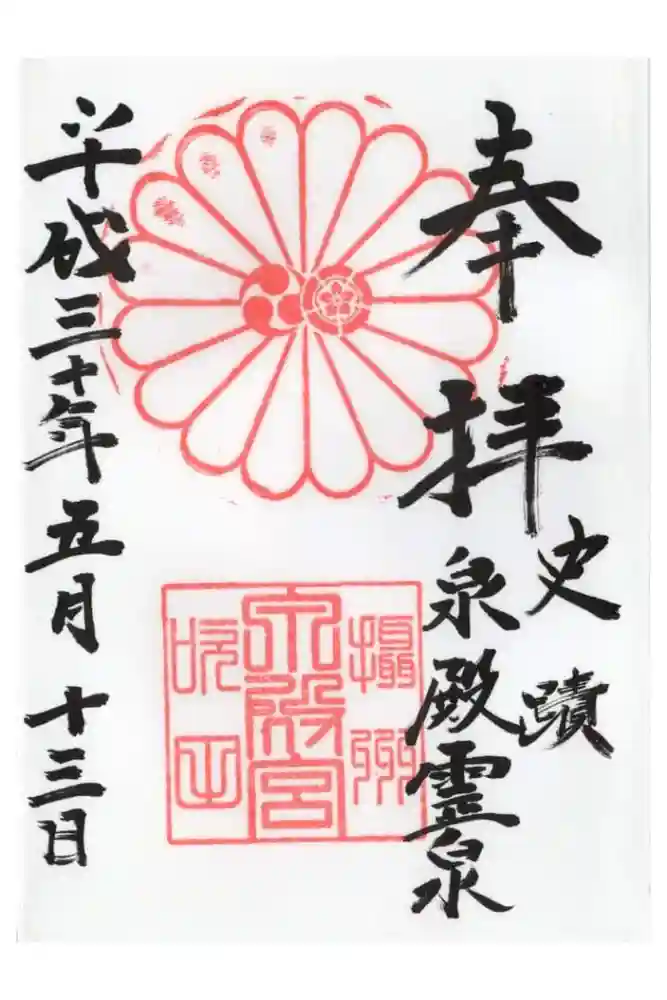 奉拝
史蹟
泉殿霊泉
摂州
泉殿宮
吹田
平成三十年五月十三日